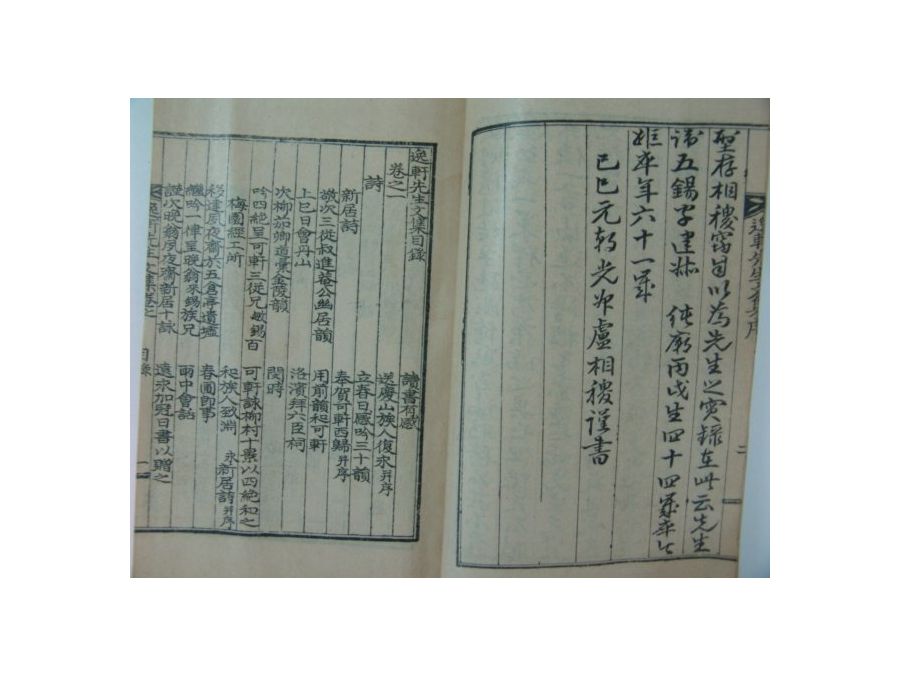 聖存相稷窃自以爲先生之實錄在此云先生
諱五錫字建叔 純廟丙戌生四十四歲卒
年六十一歲
己巳元朝光州盧相稷謹書
逸軒先生文集序
二
逸軒先生文集目錄
卷之一
詩
新居詩
讀書有感
敬次三從叔進菴公幽居韻
送慶山族人復永并序
上巳日會丹山
立春日感吟三十韻
次柳茄鄉道彙金陵韻
奉賀可軒西歸并序
吟四絶呈可軒三從兄敏錫百
用前韻和可軒
梅園經工所
洛濱拜六臣祠
閔時
可軒詠柳村十景以四絶和之
和族人致淵 永新居詩并序
移建夙夜齋於五倉亭遺墟
春圃卽事
繼吟一律呈晩翁來錫族兄
雨中會話
謹次晩翁夙夜齋新居十詠
遠永加冠日書以贈之
逸軒先生文集卷之一
目錄
一